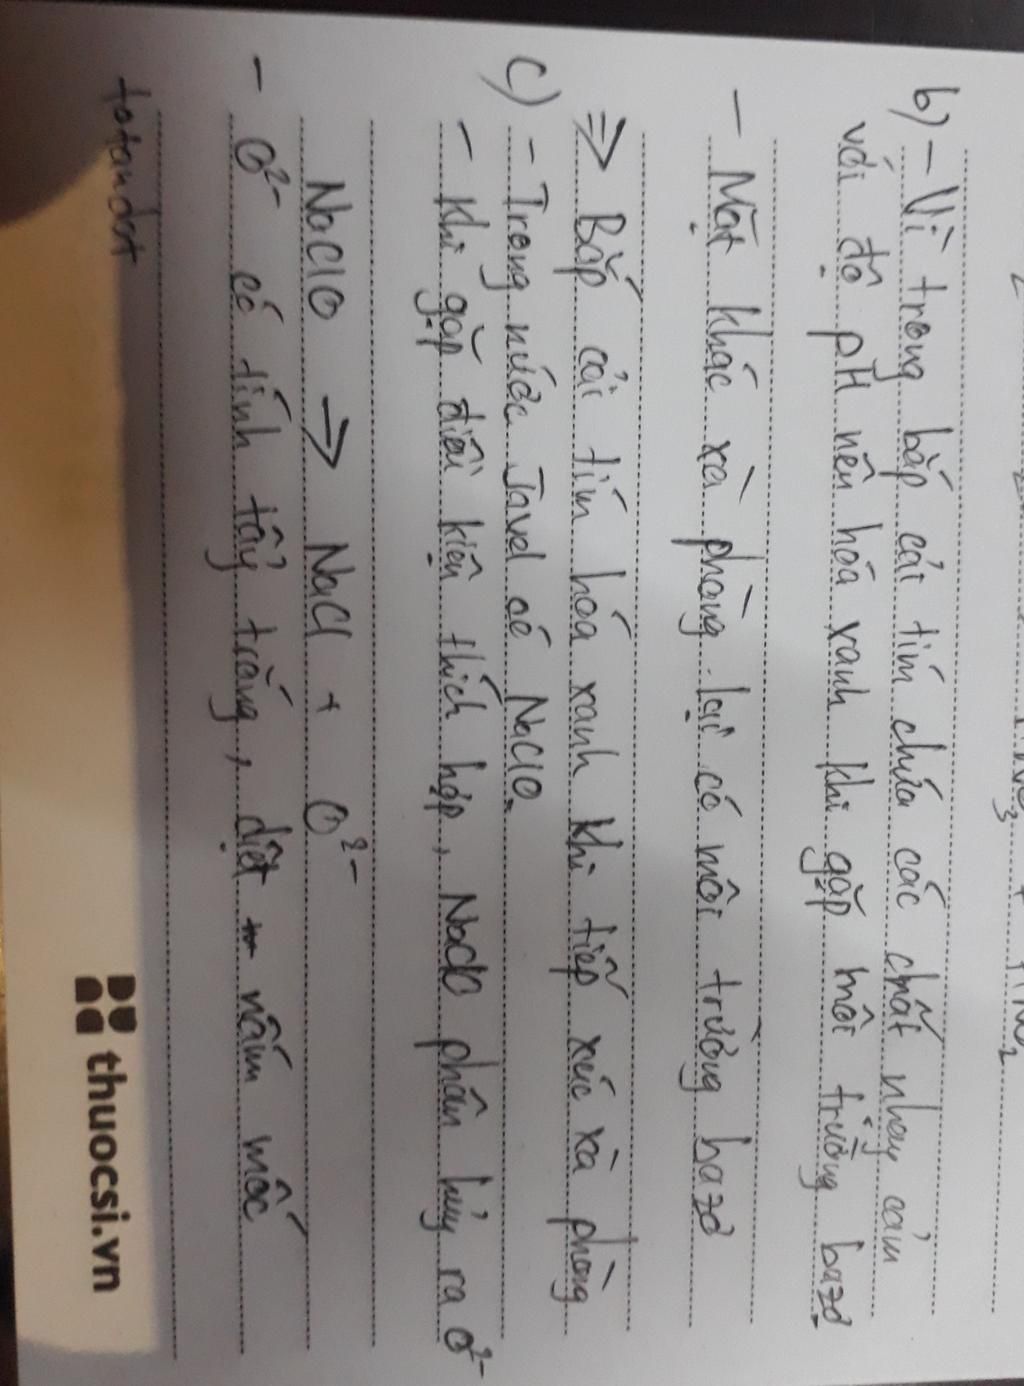 b) - Vì trong bắp cải tím chứa các chất nhạy cảm
với độ pH nên hóa xanh khi gặp môi trường bazơ
- Mặt khác xà phòng lại có môi trường bazơ
=> Bắp cải tím hóa xanh khi tiếp xúc xà phòng
c) - Trong nước Javel có NaClO.
- Khi gặp điều kiện thích hợp, NaClO phân hủy ra O²⁻
NaClO => NaCl + O²⁻
- O²⁻ có tính tẩy trắng, diệt nấm mốc
totandat
thuocsi.vn